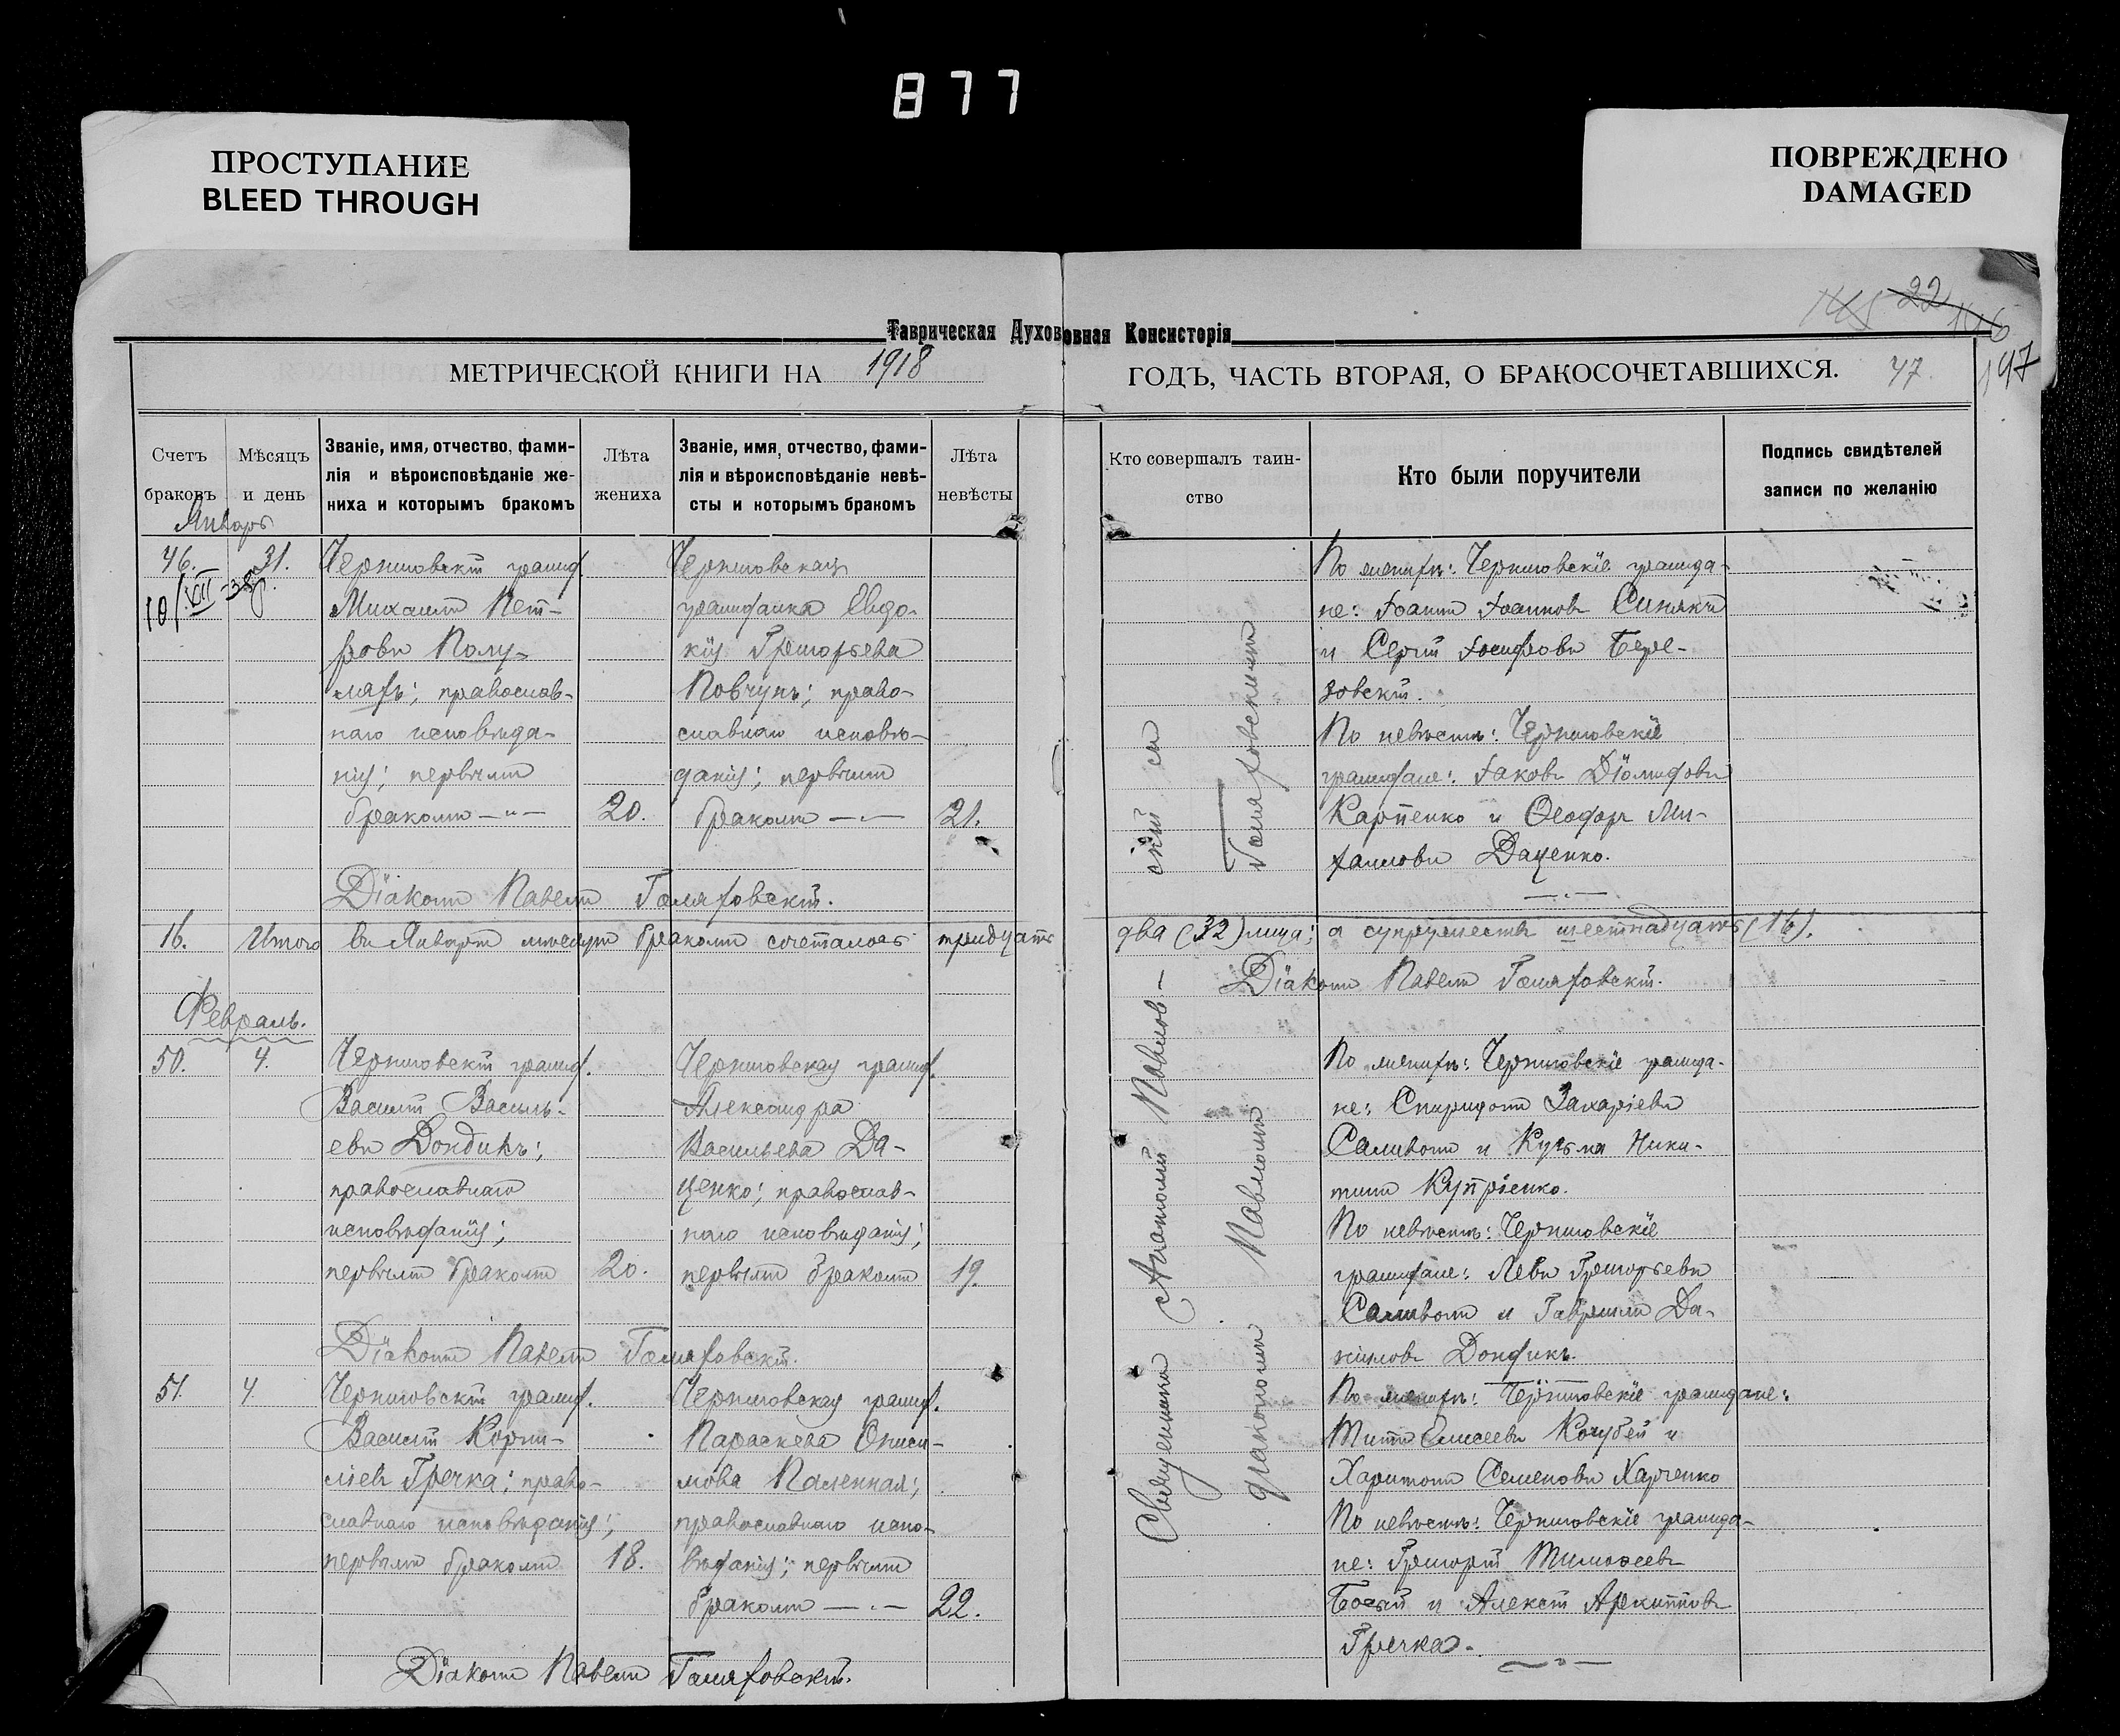 877
ПРОСТУПАНИЕ
BLEED THROUGH
ПОВРЕЖДЕНО
DAMAGED
Таврическая Духовная Консисторія
22
МЕТРИЧЕСКОЙ КНИГИ НА 1918
ГОДЪ, ЧАСТЬ ВТОРАЯ, О БРАКОСОЧЕТАВШИХСЯ. 47.
197
Счетъ
браковъ
Мѣсяцъ
и день
Званіе, имя, отчество, фами-
лія и вѣроисповѣданіе же-
ниха и которымъ бракомъ
Лѣта
жениха
Званіе, имя, отчество, фами-
лія и вѣроисповѣданіе невѣ-
сты и которымъ бракомъ
Лѣта
невѣсты
Кто совершалъ таин-
ство
Кто были поручители
Подпись свидѣтелей
записи по желанію
Январь
46. 31.
10/XII-38
Черниговскій гражд.
Михаилъ Пет-
ровъ Полу-
ляхъ; православ-
наго исповѣда-
нія; первымъ
бракомъ —"— 20.
Черниговская
гражданка Евдо-
кія Григорьева
Повчунъ; право-
славнаго исповѣ-
данія; первымъ
бракомъ —"— 21.
По женихѣ: Черниговскіе гражда-
не: Іоаннъ Іоанновъ Синякъ
и Сергій Іосифовъ Бере-
зовскій.
По невѣстѣ: Черниговскіе
граждане: Іаковъ Діомидовъ
Карпенко и Ѳеодоръ Ми-
хаиловъ Даценко.
Діаконъ Павелъ Голяховскій.
16. Итого въ Январѣ мѣсяцѣ бракомъ сочеталось тридцать
два (32) лица; а супружествъ шестнадцать (16).
Діаконъ Павелъ Голяховскій.
Февраль.
50. 4.
Черниговскій гражд.
Василій Василь-
евъ Дондикъ;
православнаго
исповѣданія;
первымъ бракомъ 20.
Черниговская гражд.
Александра
Васильева Да-
ценко; православ-
наго исповѣданія;
первымъ бракомъ 19.
По женихѣ: Черниговскіе гражда-
не: Спиридонъ Захаріевъ
Саливонъ и Кузьма Ники-
тинъ Купріенко.
По невѣстѣ: Черниговскіе
граждане: Левъ Григорьевъ
Саливонъ и Гавріилъ Да-
ніиловъ Дондикъ.
Діаконъ Павелъ Голяховскій.
51. 4.
Черниговскій гражд.
Василій Корни-
ліевъ Гречка; право-
славнаго исповѣданія;
первымъ бракомъ 18.
Черниговская гражд.
ПараскеваОниси-
мова Паленная;
православнаго испо-
вѣданія; первымъ
бракомъ —"— 22.
По женихѣ: Черниговскіе граждане:
Титъ Елисеевъ Кочубей и
Харитонъ Семеновъ Харченко
По невѣстѣ: Черниговскіе гражда-
не: Григорій Тимоѳеевъ
Босый и Алексій Архиповъ
Гречка.
Діаконъ Павелъ Голяховскій.
Священникъ Анатолій Павлов-
скій съ
діакономъ Павломъ
Голяховскимъ